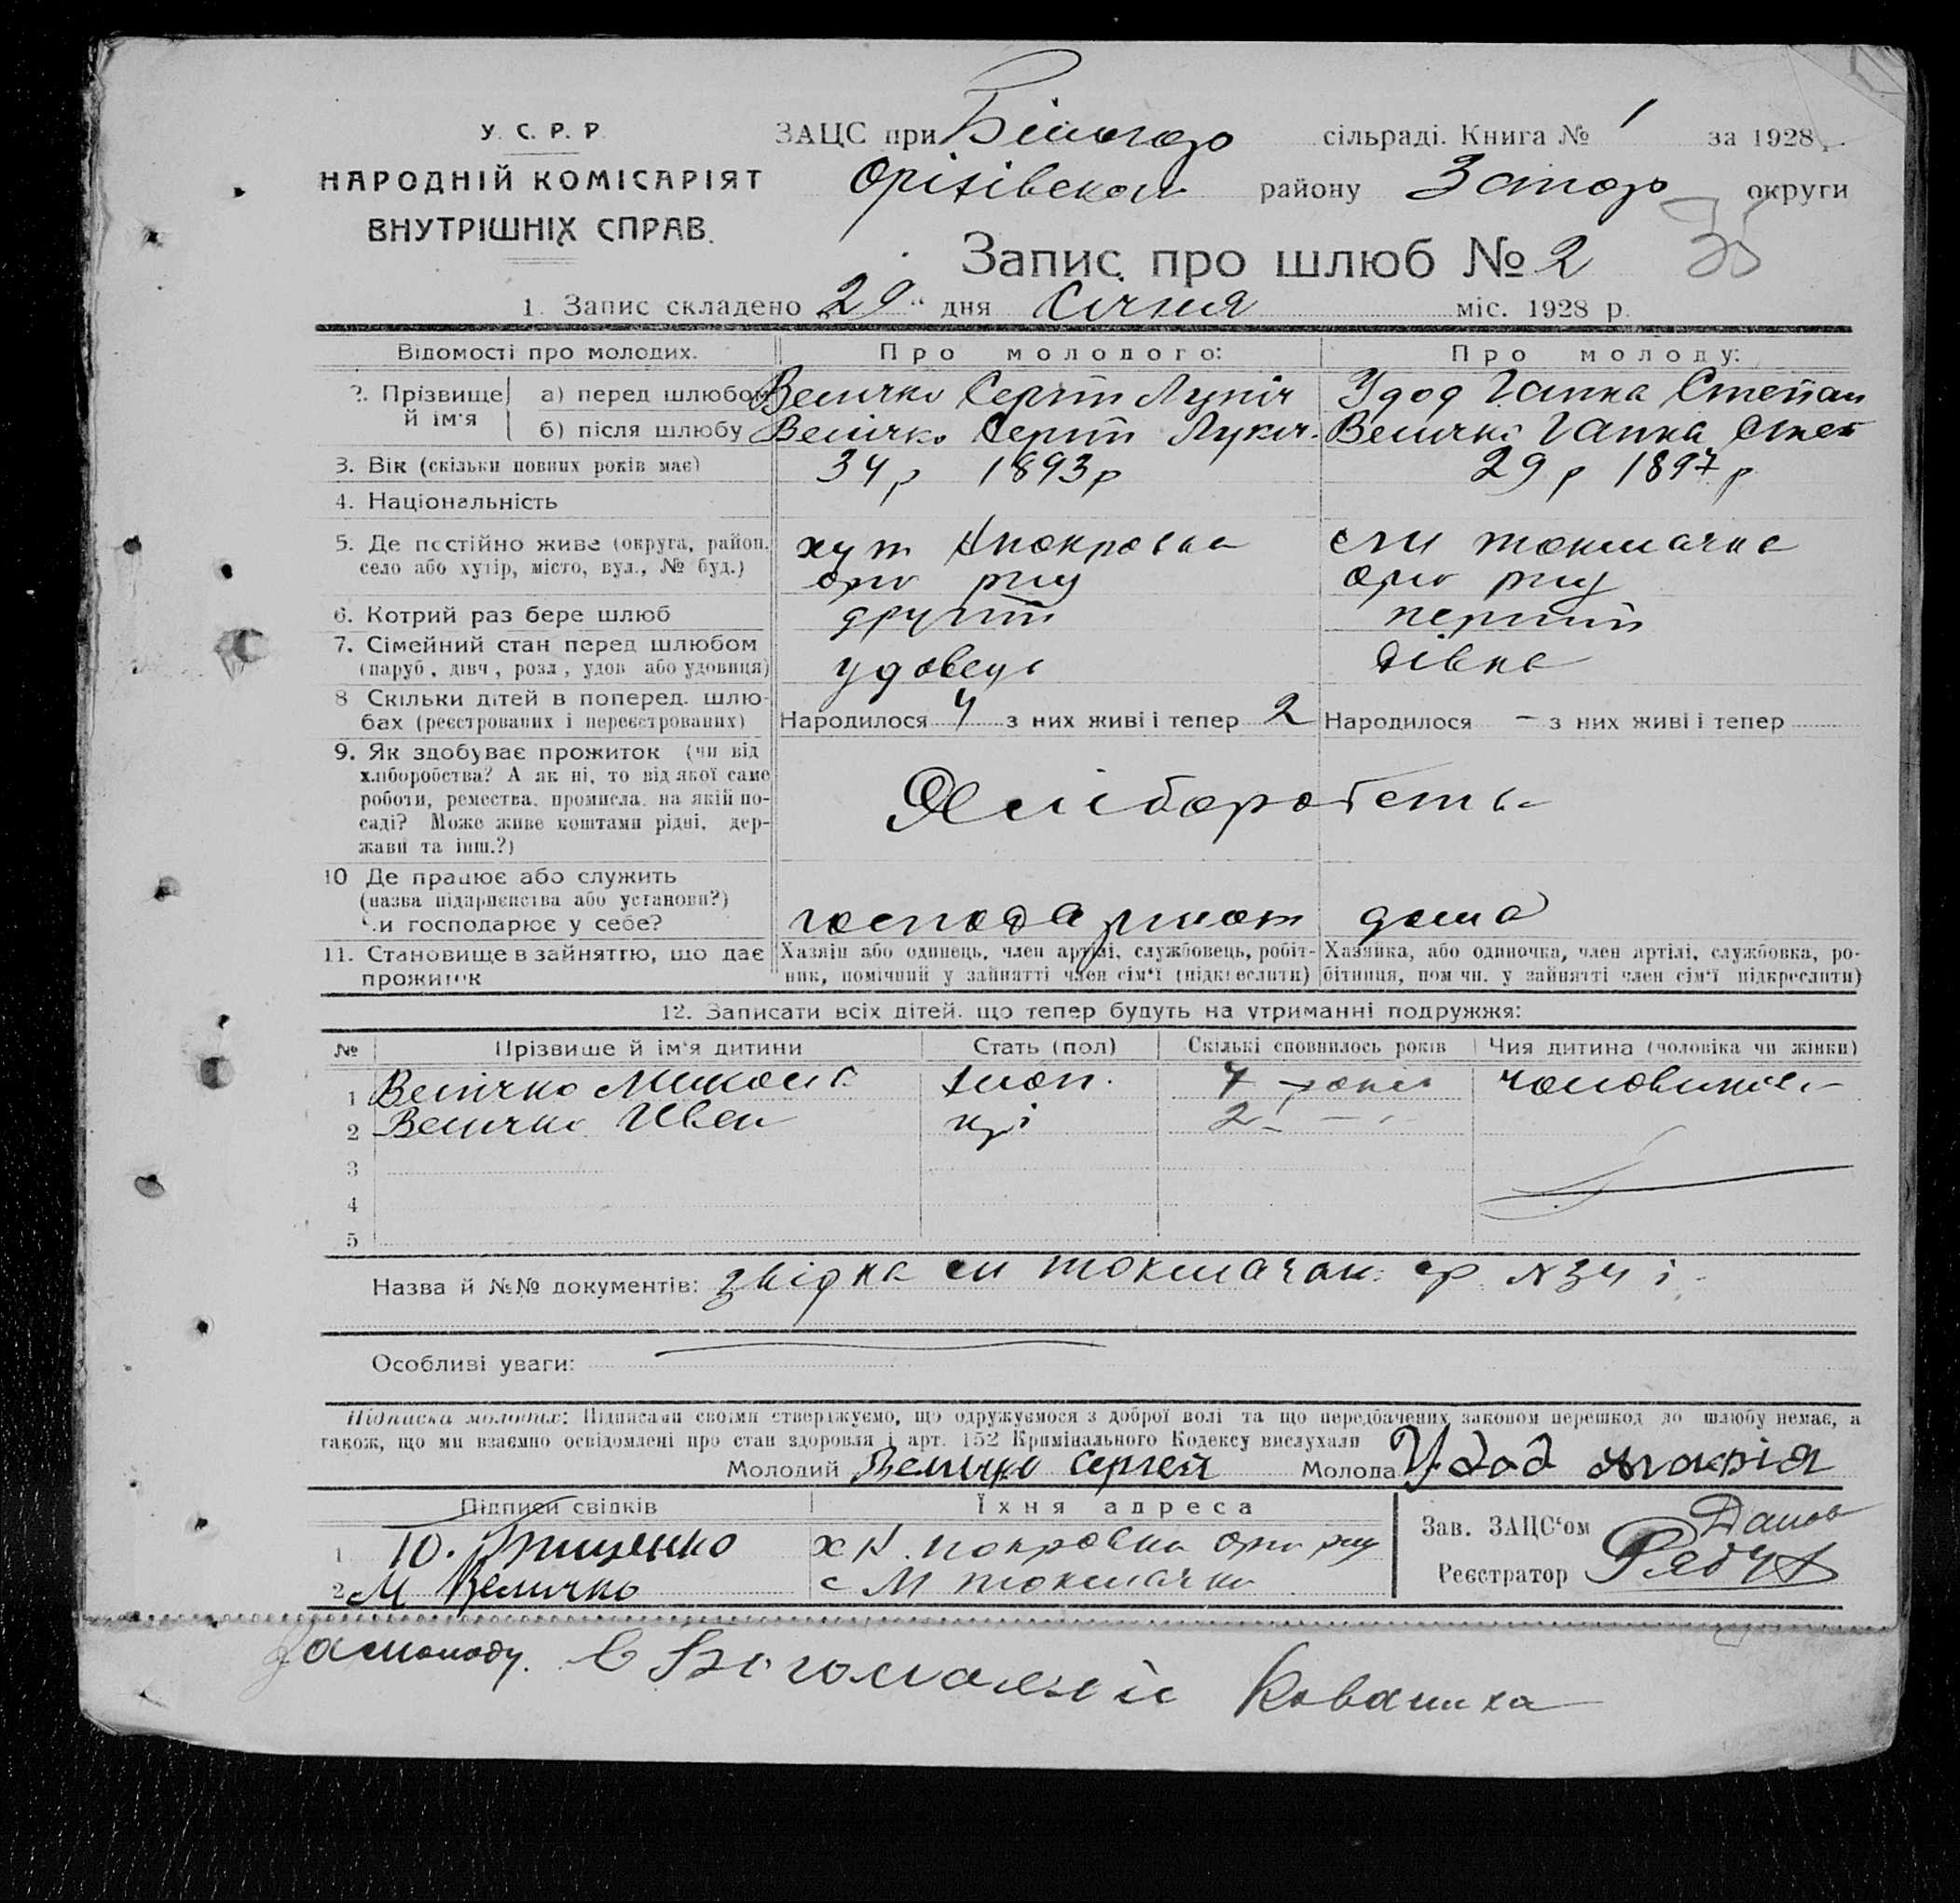 У. С. Р. Р.
НАРОДНІЙ КОМІСАРІЯТ
ВНУТРІШНІХ СПРАВ.
ЗАЦС при сільраді. Книга № 1 за 1928 р.
Оріхівськой району Запоро округи
Запис про шлюб № 2
35
1. Запис складено „29“ дня Січня міс. 1928 р.
Відомості про молодих. Про молодого: Про молоду:
2. Прізвище й ім'я а) перед шлюбом Величко Сергій Лукіч Удод Ганна Степан
б) після шлюбу Величко Сергій Лукич. Величко Ганна Степ
3. Вік (скільки повних років має) 34 р 1893 р 29 р 1897 р
4. Національність
5. Де постійно живе (округа, район, село або хутір, місто, вул., № буд.) хут Нпокровка ор рну с М токмачка ор рну
6. Котрий раз бере шлюб другий перший
7. Сімейний стан перед шлюбом (паруб., дівч., розл., удов. або удовиця) удовець дівка
8 Скільки дітей в поперед. шлюбах (реєстрованих і нереєстрованих) Народилося 4 з них живі і тепер 2 Народилося - з них живі і тепер
9. Як здобуває прожиток (чи від
хліборобства? А як ні, то від якої саме
роботи, ремества, промисла, на якій по-
саді? Може живе коштами рідні, дер-
жави та інш.?)
Хліборобств
10 Де працює або служить
(назва підприємства або установи?)
Чи господарює у себе?
господарюют дома
11. Становище в зайняттю, що дає прожиток
Хазяїн або одинець, член артілі, службовець, робіт-
ник, помічний у зайнятті член сім'ї (підкреслити)
Хазяйка, або одиночка, член артілі, службовка, ро-
бітниця, помічн. у зайнятті член сім'ї підкреслити)
12. Записати всіх дітей, що тепер будуть на утриманні подружжя:
№ Прізвище й ім'я дитини Стать (пол) Скількі сповнилось років Чия дитина (чоловіка чи жінки)
1 Величко Микола чол. 7 років чоловікова
2 Величко Иван 2
3
4
5
Назва й №№ документів: звідка с М токмачан. ср № 34
Особливі уваги:
Підписка молодих: Підписами своїми стверджуємо, що одружуємося з доброї волі та що передбачених законом перешкод до шлюбу немає, а
також, що ми взаємно освідомлені про стан здоровля і арт. 152 Кримінального Кодексу вислухали
Молодий Величко Сергей Молода Удод
Підписи свідків Їхня адреса
1 Ю. Грищенко х Н. покровка ор рну
2 М Величко с М токмачка
Зав. ЗАЦС'ом
Реєстратор
За молоду.